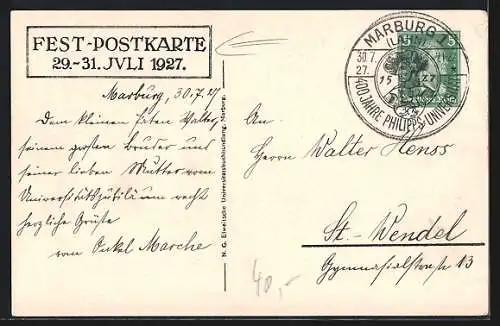 FEST-POSTKARTE
29.-31. JVLI 1927.
MARBURG 1
(LAHN)
30.7.
27.
400 JAHRE PHILIPPS-UNIVERSITÄT
15
Marburg, 30.7.27
Dem kleinen lieben Walter,
seinem großen Bruder und
seiner lieben Mutter vom
Universitätsjubiläum recht
herzliche Grüße
vom Onkel Marche
N. G. Elwert'sche Universitätsbuchhandlung, Marburg.
An
Herrn Walter Henss
St.-Wendel
Gymnasialstrasse 13
40,-